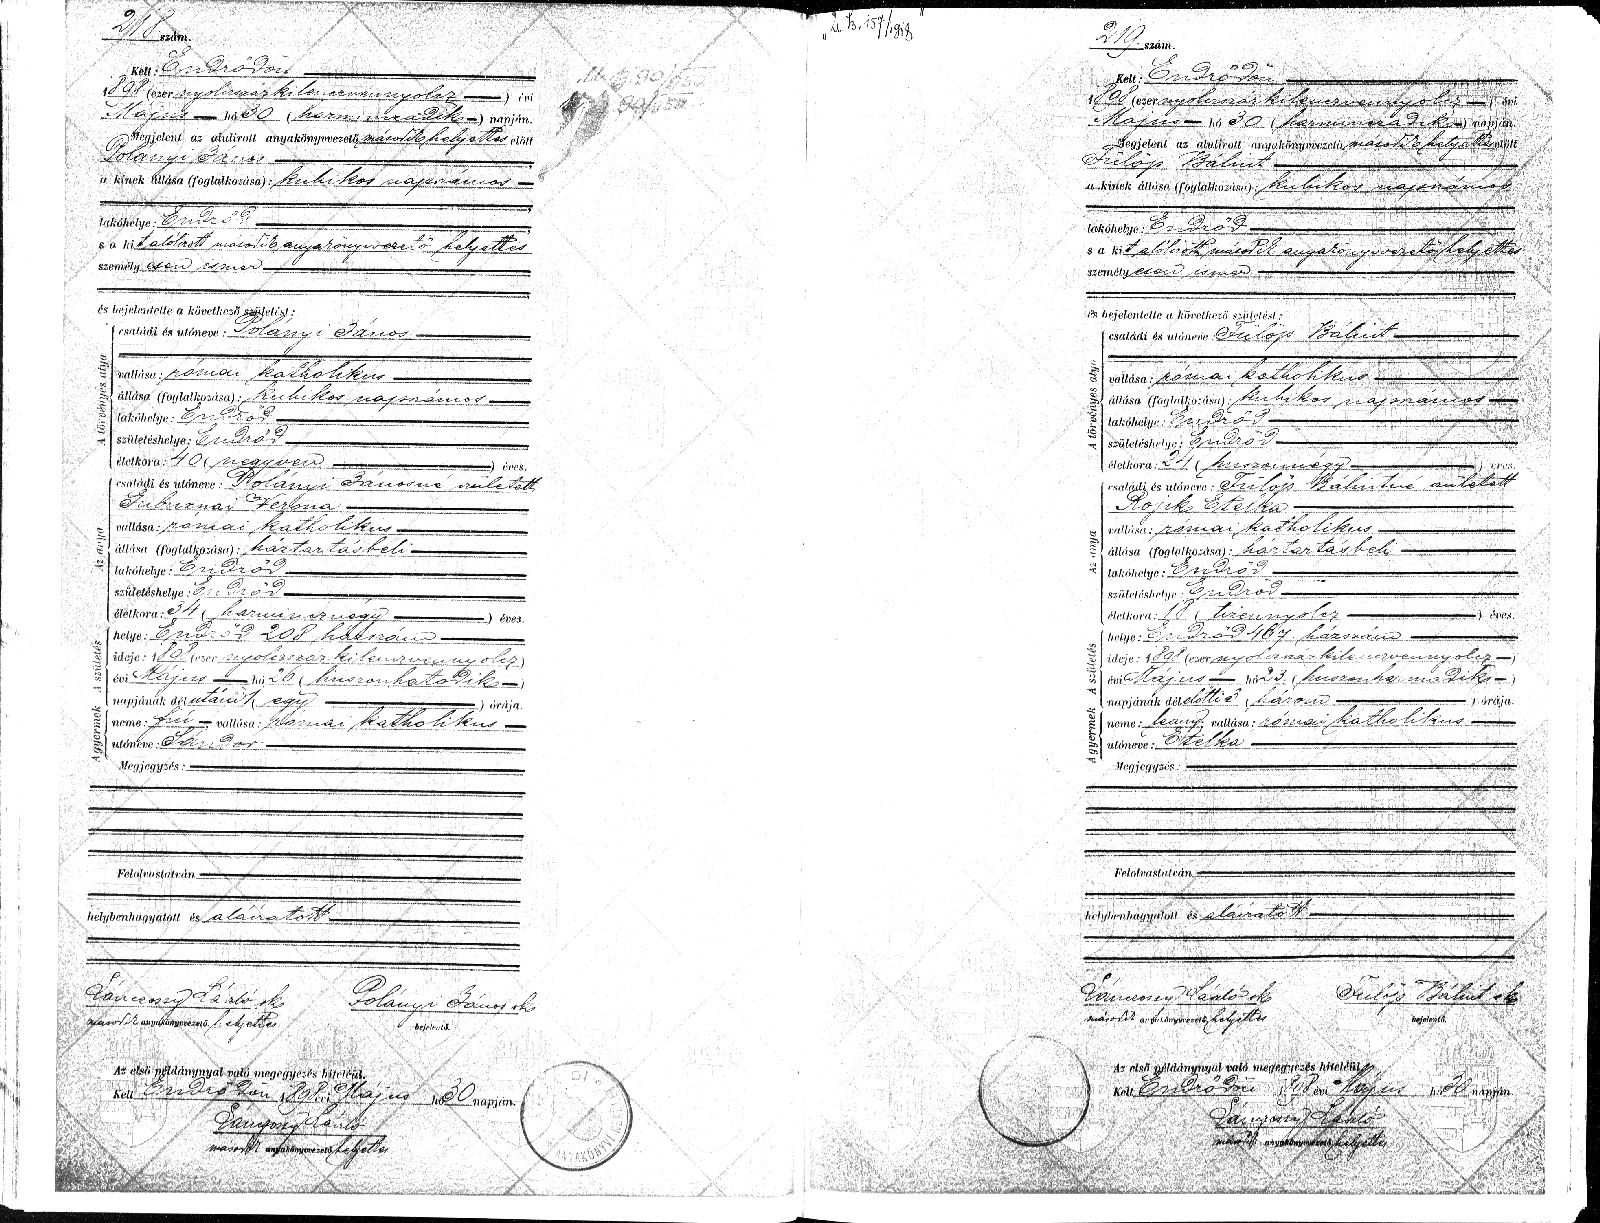 218 szám.
Kelt: Endrődön
1898 (ezer nyolczszázkilenczvennyolcz) évi
Május hó 30 (harminczadik) napján.
Megjelent az alulirott anyakönyvvezető második helyettes előtt
Polányi János
a kinek állása (foglalkozása): kubikos napszámos
lakóhelye: Endrőd
s a kit alólirott második anyakönyvvezető helyettes
személyesen ismer
és bejelentette a következő születést:
A törvényes atya
családi és utóneve: Polányi János
vallása: római katholikus
állása (foglalkozása): kubikos napszámos
lakóhelye: Endrőd
születéshelye: Endrőd
életkora: 40 (negyven) éves.
Az anya
családi és utóneve: Polányi Jánosné született
Verona
vallása: római katholikus
állása (foglalkozása): háztartásbeli
lakóhelye: Endrőd
születéshelye: Endrőd
életkora: 34 (harmincznégy) éves.
A születés
helye: Endrőd 208 házszám
ideje: 1898 (ezer nyolczszázkilenczvennyolcz)
évi Május hó 26 (huszonhatodik)
napjának délutáni 1 (egy) órája.
A gyermek
neme: fiú vallása: római katholikus
utóneve: Sándor
Megjegyzés:
Felolvastatván
helybenhagyatott és aláiratott
László sk
Polányi János sk
második anyakönyvvezető helyettes
bejelentő.
Az első példánynyal való megegyezés hiteléül.
Kelt Endrődön 1898 évi Május hó 30 napján.
László
második anyakönyvvezető helyettes
219 szám.
Kelt: Endrődön
1898 (ezer nyolczszázkilenczvennyolcz) évi
Május hó 30 (harminczadik) napján.
Megjelent az alulirott anyakönyvvezető második helyettes előtt
Fülöp Bálint
a kinek állása (foglalkozása): kubikos napszámos
lakóhelye: Endrőd
s a kit alólirott második anyakönyvvezető helyettes
személyesen ismer
és bejelentette a következő születést:
A törvényes atya
családi és utóneve: Fülöp Bálint
vallása: római katholikus
állása (foglalkozása): kubikos napszámos
lakóhelye: Endrőd
születéshelye: Endrőd
életkora: 24 (huszonnégy) éves.
Az anya
családi és utóneve: Fülöp Bálintné született
Rojik Etelka
vallása: római katholikus
állása (foglalkozása): háztartásbeli
lakóhelye: Endrőd
születéshelye: Endrőd
életkora: 18 (tizennyolcz) éves.
A születés
helye: Endrőd 467 házszám
ideje: 1898 (ezer nyolczszázkilenczvennyolcz)
évi Május hó 23. (huszonharmadik)
napjának délelőtti 3 (három) órája.
A gyermek
neme: leány vallása: római katholikus
utóneve: Etelka
Megjegyzés:
Felolvastatván
helybenhagyatott és aláiratott
László sk
Fülöp Bálint sk
második anyakönyvvezető helyettes
bejelentő.
Az első példánynyal való megegyezés hiteléül.
Kelt Endrődön 1898 évi Május hó 30 napján.
László
második anyakönyvvezető helyettes